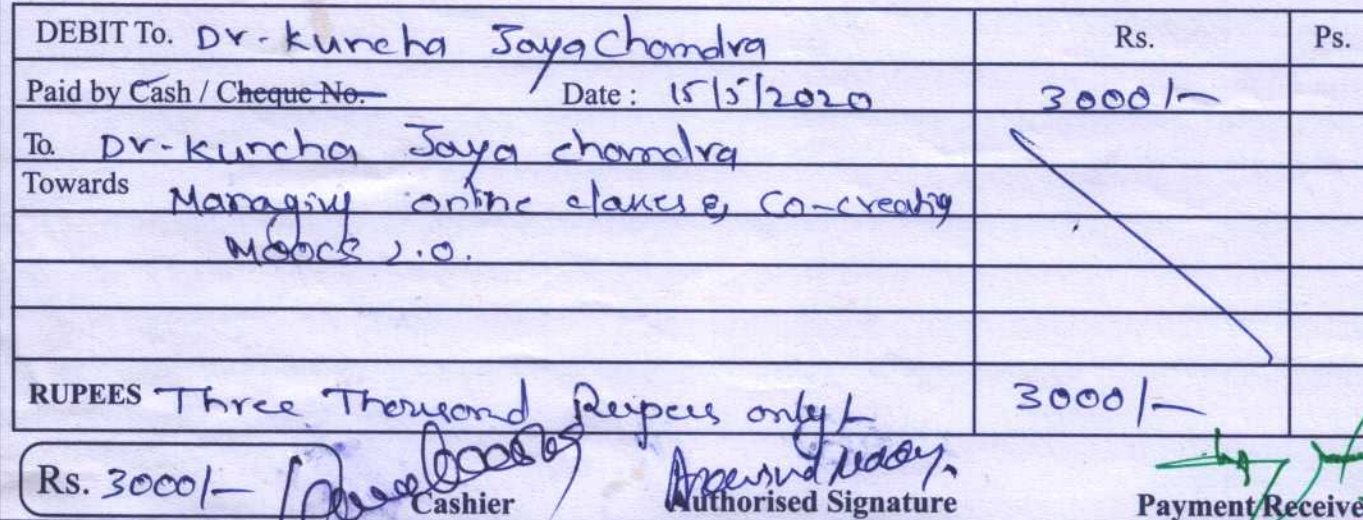 DEBIT To. Dr. Kuncha Jaya Chandra Rs. Ps.
Paid by Cash / Cheque No. Date : 15/5/2020 3000/-
To. Dr. Kuncha Jaya chandra
Towards Managing online classes & Co-creating
MOOCS 2.0.
RUPEES Three Thousand Rupees only/- 3000/-
Rs. 3000/- Cashier Authorised Signature Payment Receive